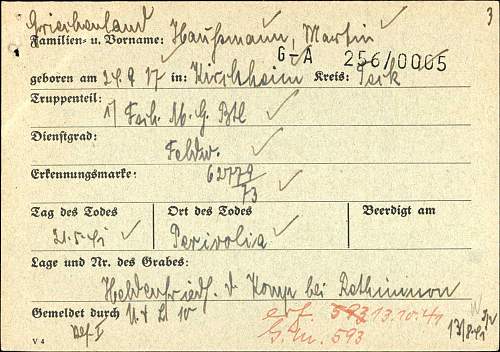 Griechenland 3
Familien- u. Vorname: Haußmann, Martin
G-A 256/0005
geboren am 24.9.17 in: Kirchheim Kreis: Teck
Truppenteil: 1/ Fsch. M.G. Btl
Dienstgrad: Feldw.
Erkennungsmarke: 62779
73
Tag des Todes Ort des Todes Beerdigt am
21.5.41 Perivolia
Lage und Nr. des Grabes:
Heldenfriedh. d. Komp bei Rethimnon
Gemeldet durch
erf. 593 13.10.41
G.m. 593
V 4